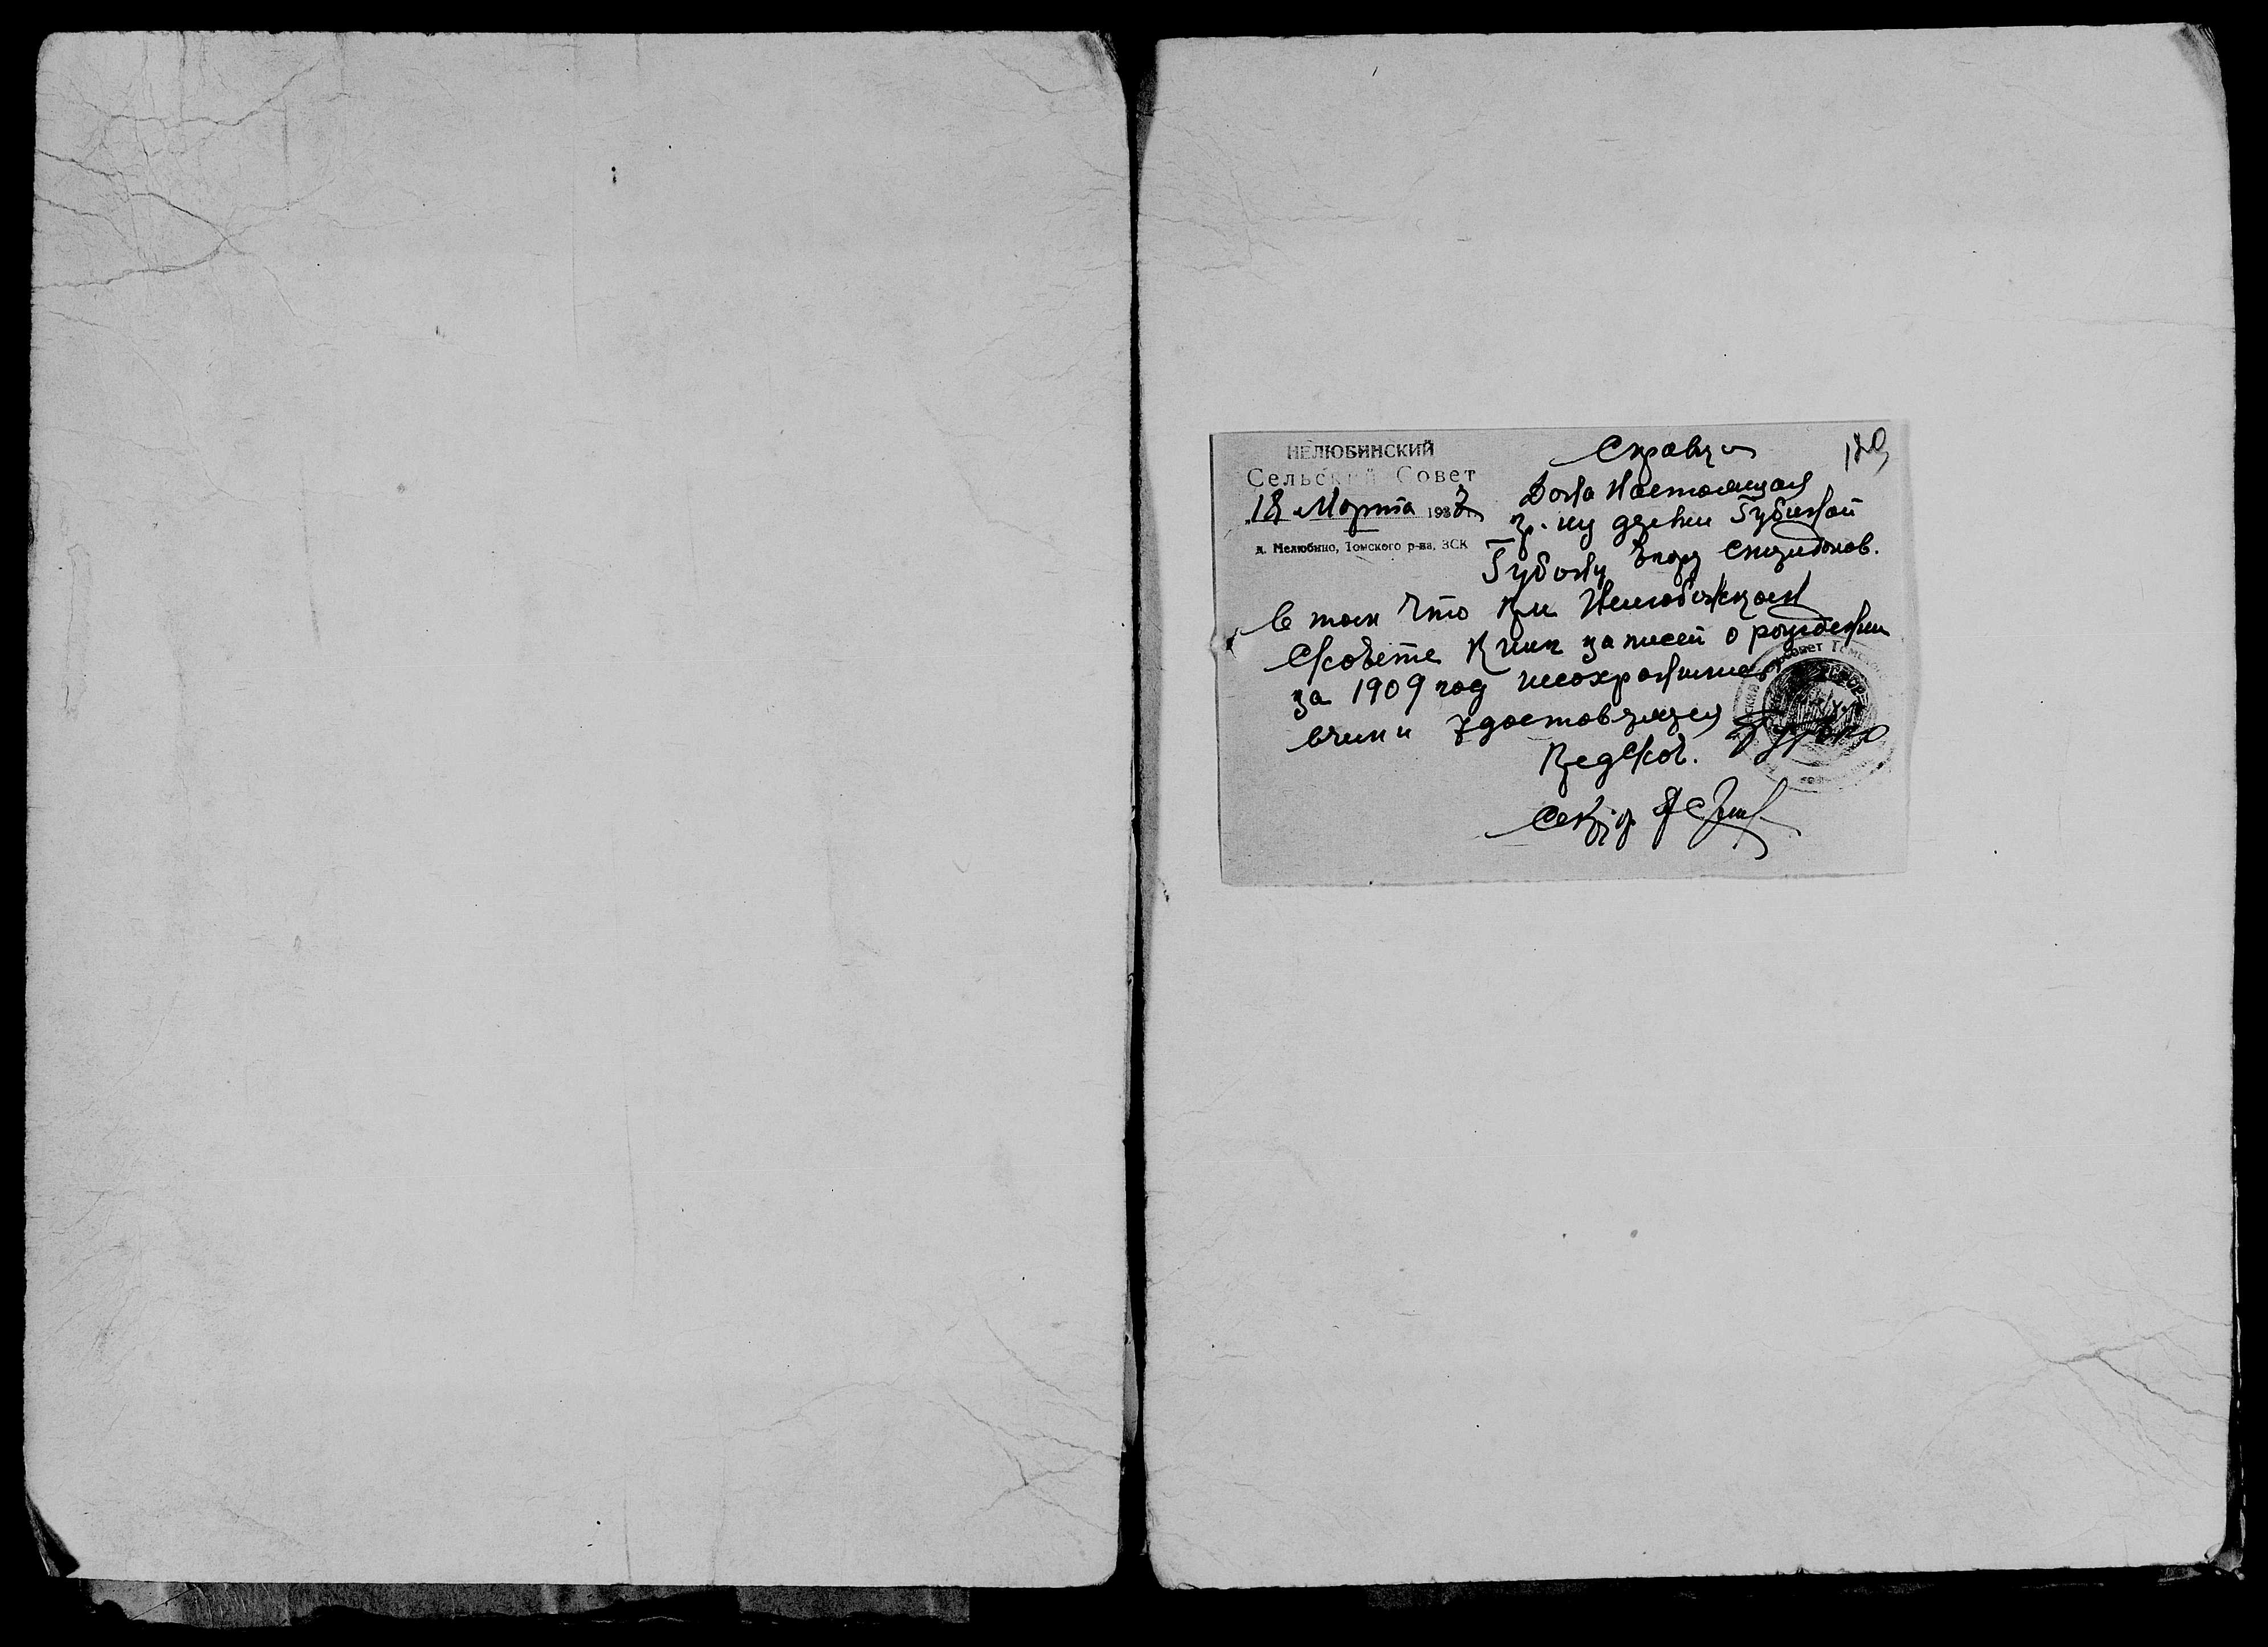 НЕЛЮБИНСКИЙ
Сельский Совет
18 Марта 1937 г.
д. Нелюбино, Томского р-на, ЗСК
Справка
Дона Настоящая
гр. из древни Губиной
Губину Егору Спиридонов.
в том что при Нелюбинском
С/совете Книг записей о рождении
за 1909 год несохранились
вчем и удостовряется
Пред с/сов.
Секр.